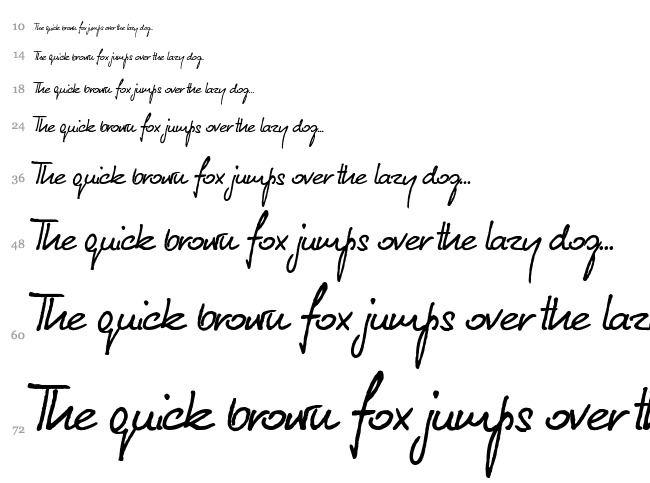 10 The quick brown fox jumps over the lazy dog...
14 The quick brown fox jumps over the lazy dog...
18 The quick brown fox jumps over the lazy dog...
24 The quick brown fox jumps over the lazy dog...
36 The quick brown fox jumps over the lazy dog...
48 The quick brown fox jumps over the lazy dog...
60 The quick brown fox jumps over the laz
72 The quick brown fox jumps over th